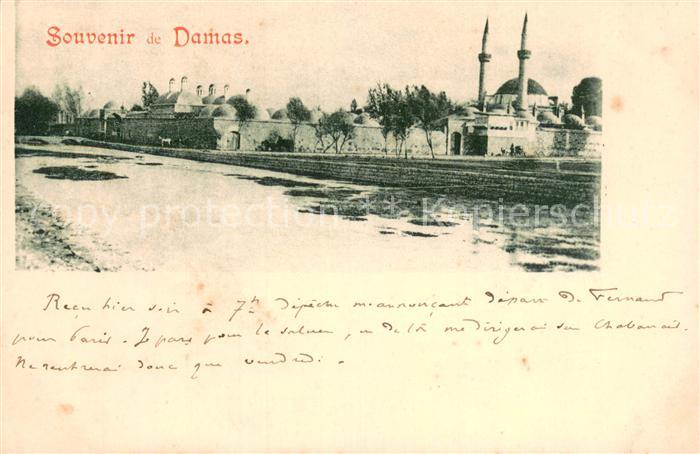 Souvenir de Damas.
copy protection Kopierschutz
Reçu hier soir à 7h dépêche m'annonçant départ de Fernand
pour Paris. Je pars pour le saluer, de là me dirigerai sur Chabanais.
Ne rentrerai donc que vendredi.